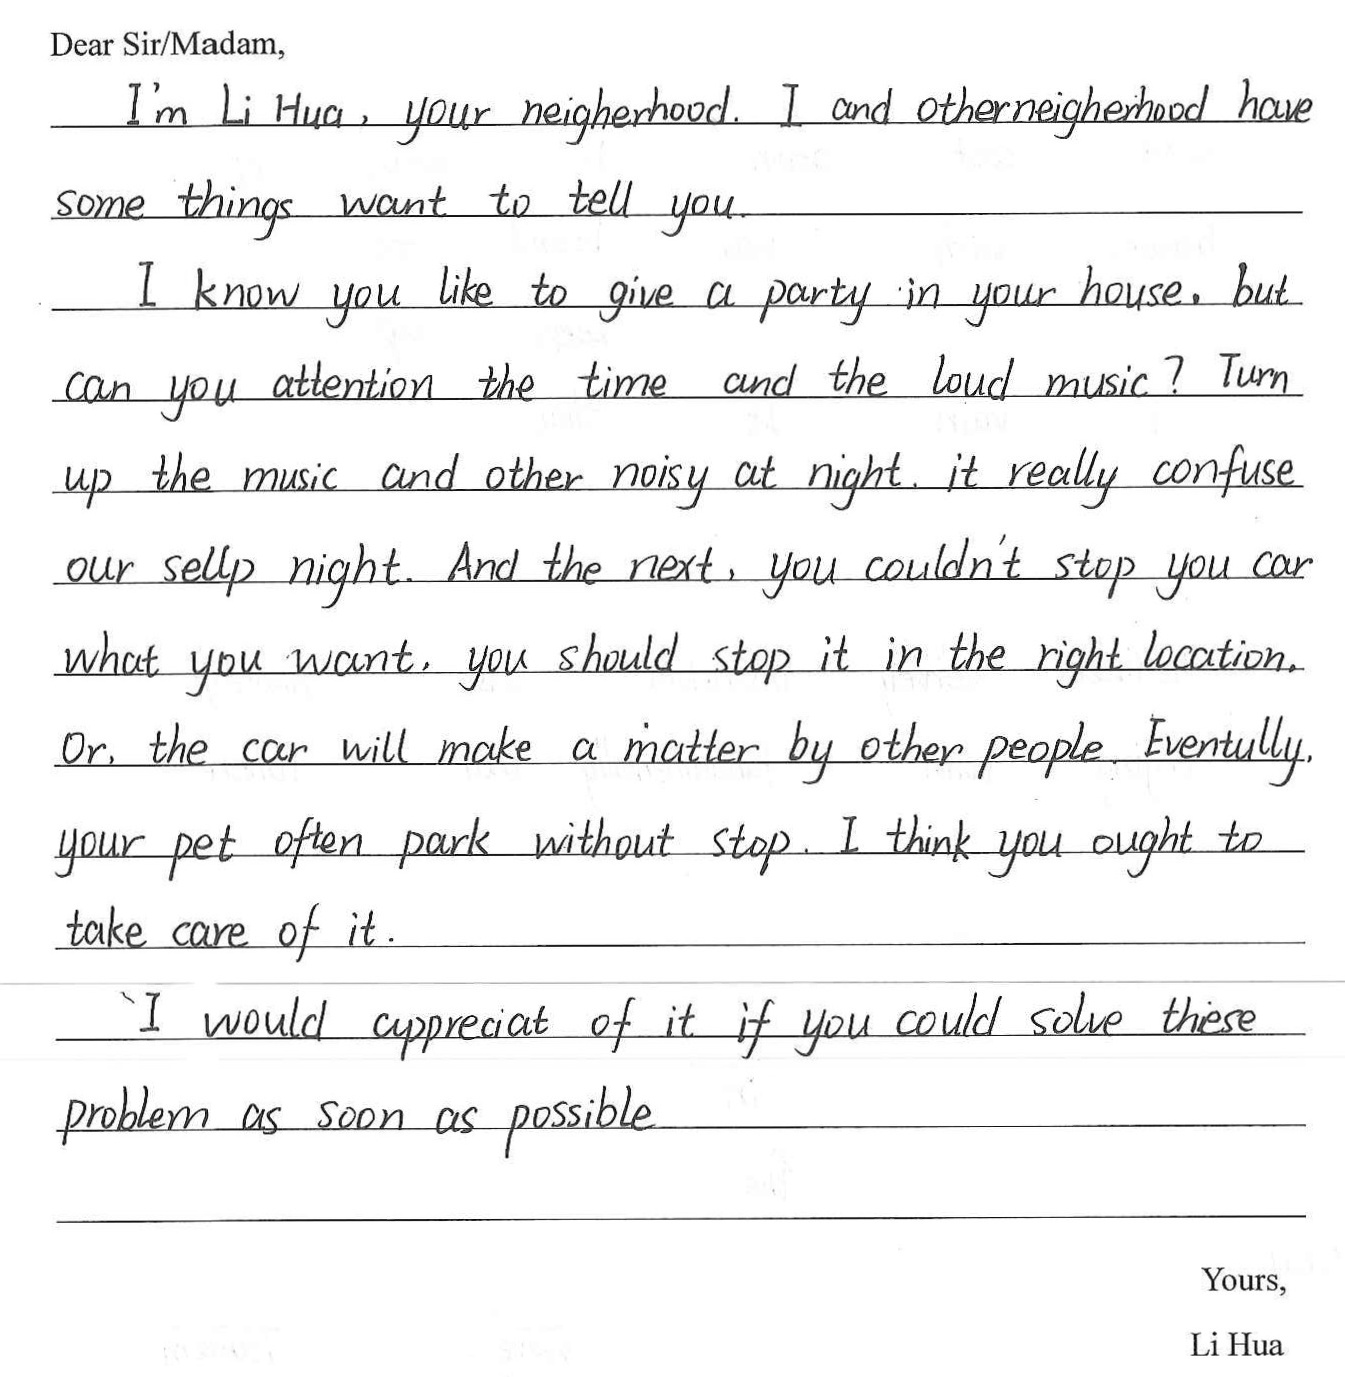 Dear Sir/Madam,
I'm Li Hua, your neigherhood. I and other neigherhood have
some things want to tell you.
I know you like to give a party in your house, but
can you attention the time and the loud music? Turn
up the music and other noisy at night. it really confuse
our sellp night. And the next, you couldn't stop you car
what you want, you should stop it in the right location.
Or, the car will make a matter by other people. Eventully,
your pet often park without stop. I think you ought to
take care of it.
I would appreciat of it if you could solve these
problem as soon as possible
Yours,
Li Hua